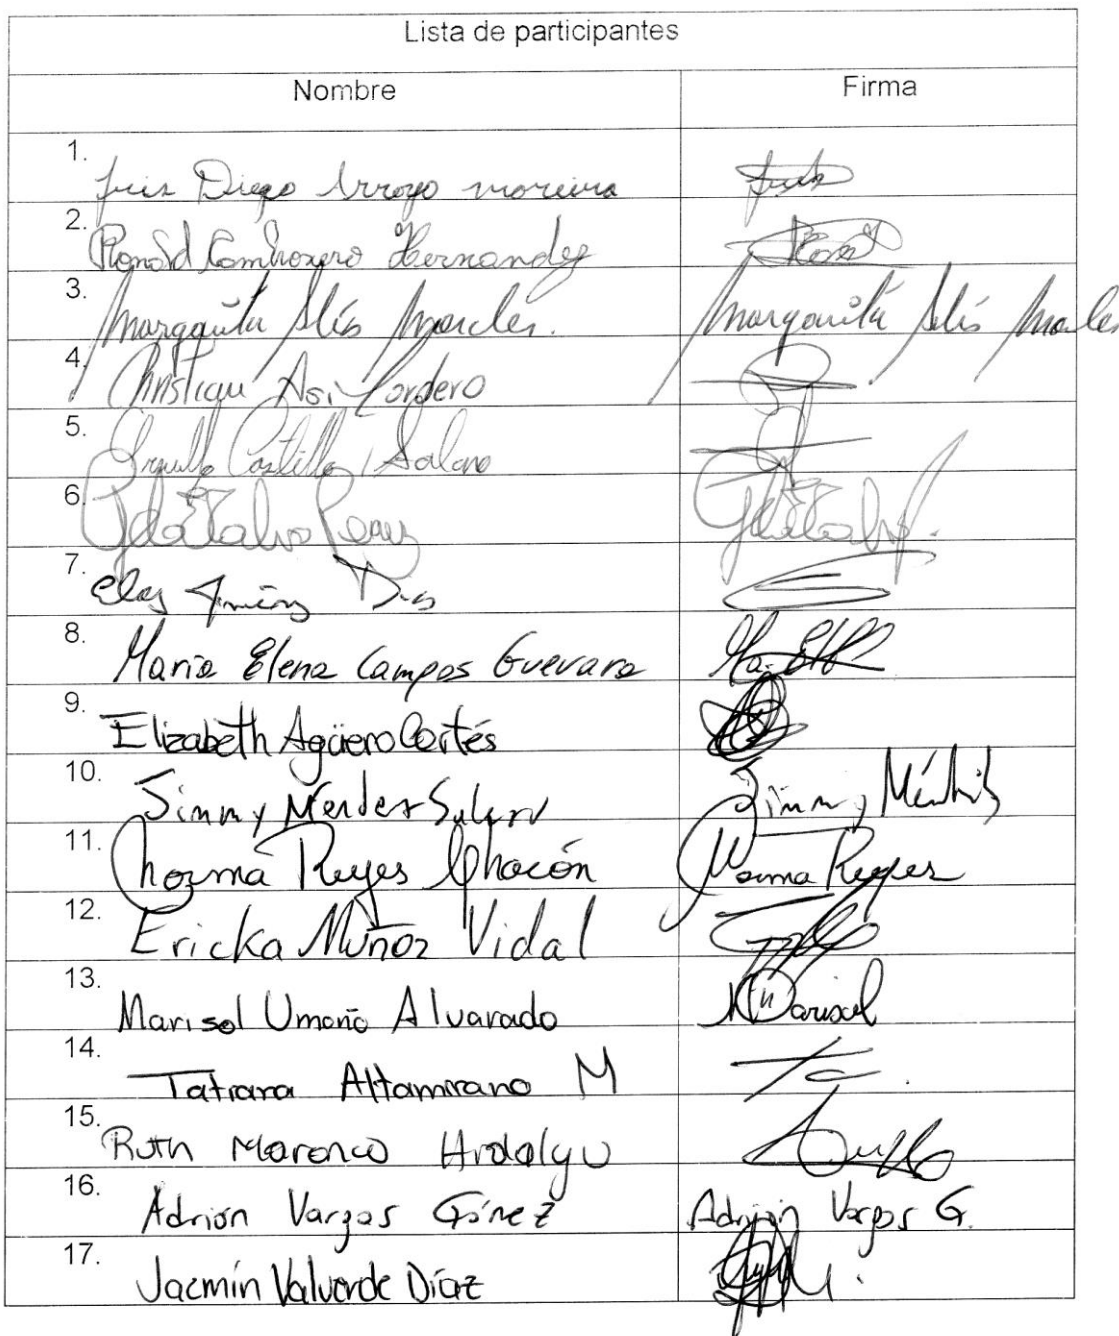 Lista de participantes
Nombre Firma
1. Luis Diego Arroyo moreira
2. Ronald Cambronero Hernandez
3. Margarita Solís Morales. Margarita Solís Morales
4. Christian Asi Cordero
5. Castillo Solano
6.
7.
8. Maria Elena Campos Guevara
9. Elizabeth Agüero Cortés
10. Jimmy Mendez Jimmy
11. Norma Reyes Chacón Norma Reyes
12. Ericka Muñoz Vidal
13. Marisol Umaña Alvarado Marisol
14. Tatiana Altamirano M
15. Ruth Marenco
16. Adrián Vargas Gómez Adrián Vargas G.
17. Jacmín Valverde Díaz